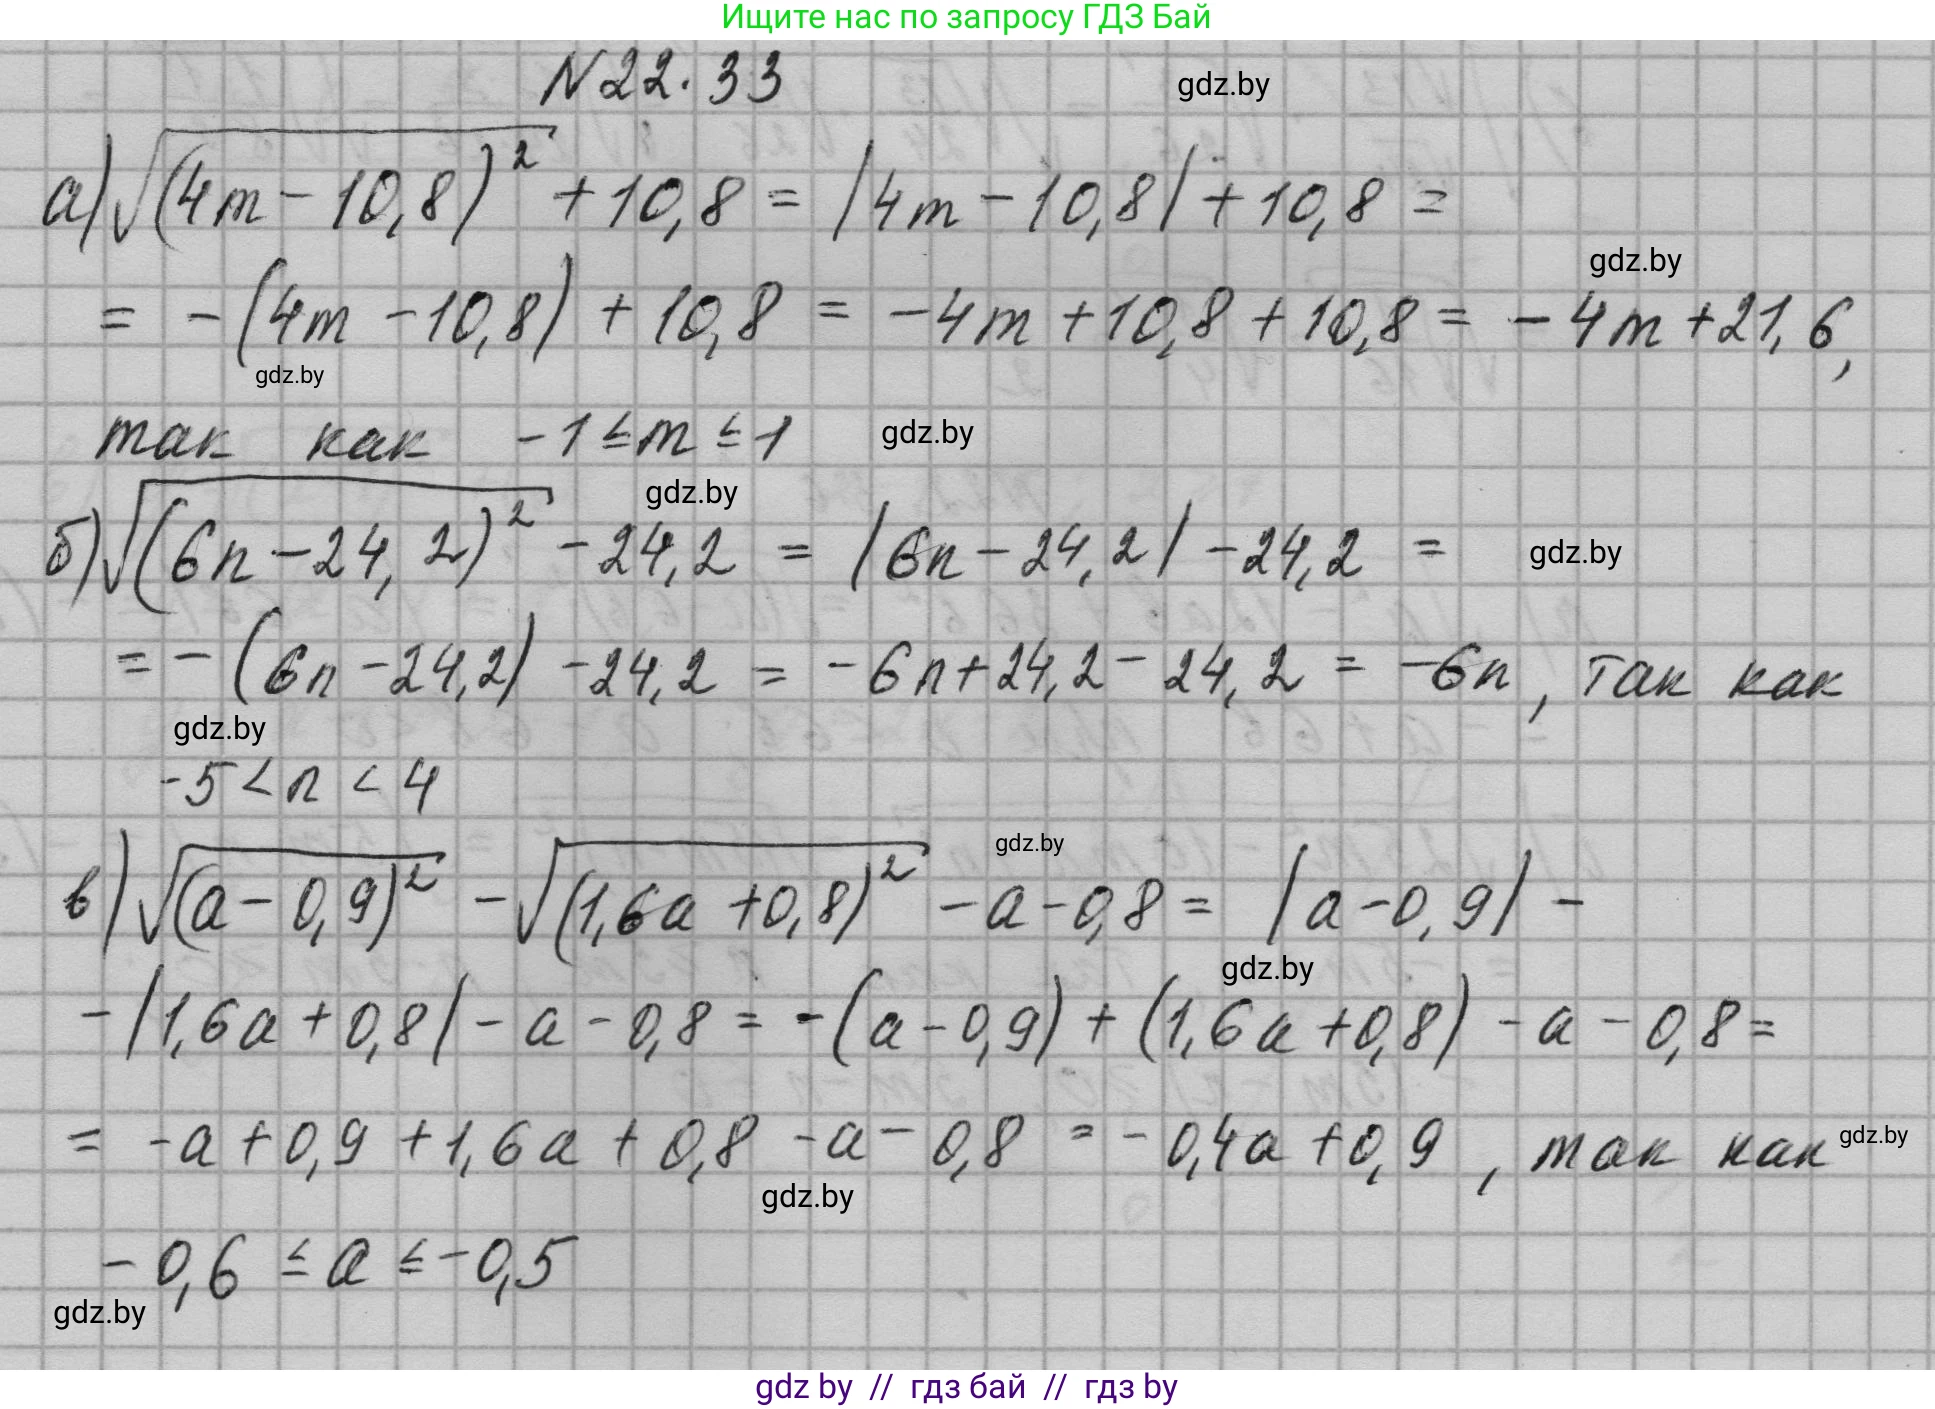 Ищите нас по запросу ГДЗ Бай
N22.33
gdz.by
а) √(4m - 10,8)² + 10,8 = |4m - 10,8| + 10,8 =
gdz.by
= - (4m - 10,8) + 10,8 = - 4m + 10,8 + 10,8 = - 4m + 21,6,
gdz.by
так как -1 ≤ m ≤ 1
gdz.by
gdz.by
б) √(6n - 24,2)² - 24,2 = |6n - 24,2| - 24,2 =
gdz.by
= - (6n - 24,2) - 24,2 = - 6n + 24,2 - 24,2 = - 6n, так как
gdz.by
-5 < n < 4
gdz.by
в) √(a - 0,9)² - √(1,6a + 0,8)² - a - 0,8 = |a - 0,9| -
gdz.by
- |1,6a + 0,8| - a - 0,8 = - (a - 0,9) + (1,6a + 0,8) - a - 0,8 =
= - a + 0,9 + 1,6a + 0,8 - a - 0,8 = - 0,4a + 0,9, так как
gdz.by
gdz.by
- 0,6 ≤ a ≤ - 0,5
gdz.by
gdz by // гдз бай // гдз by